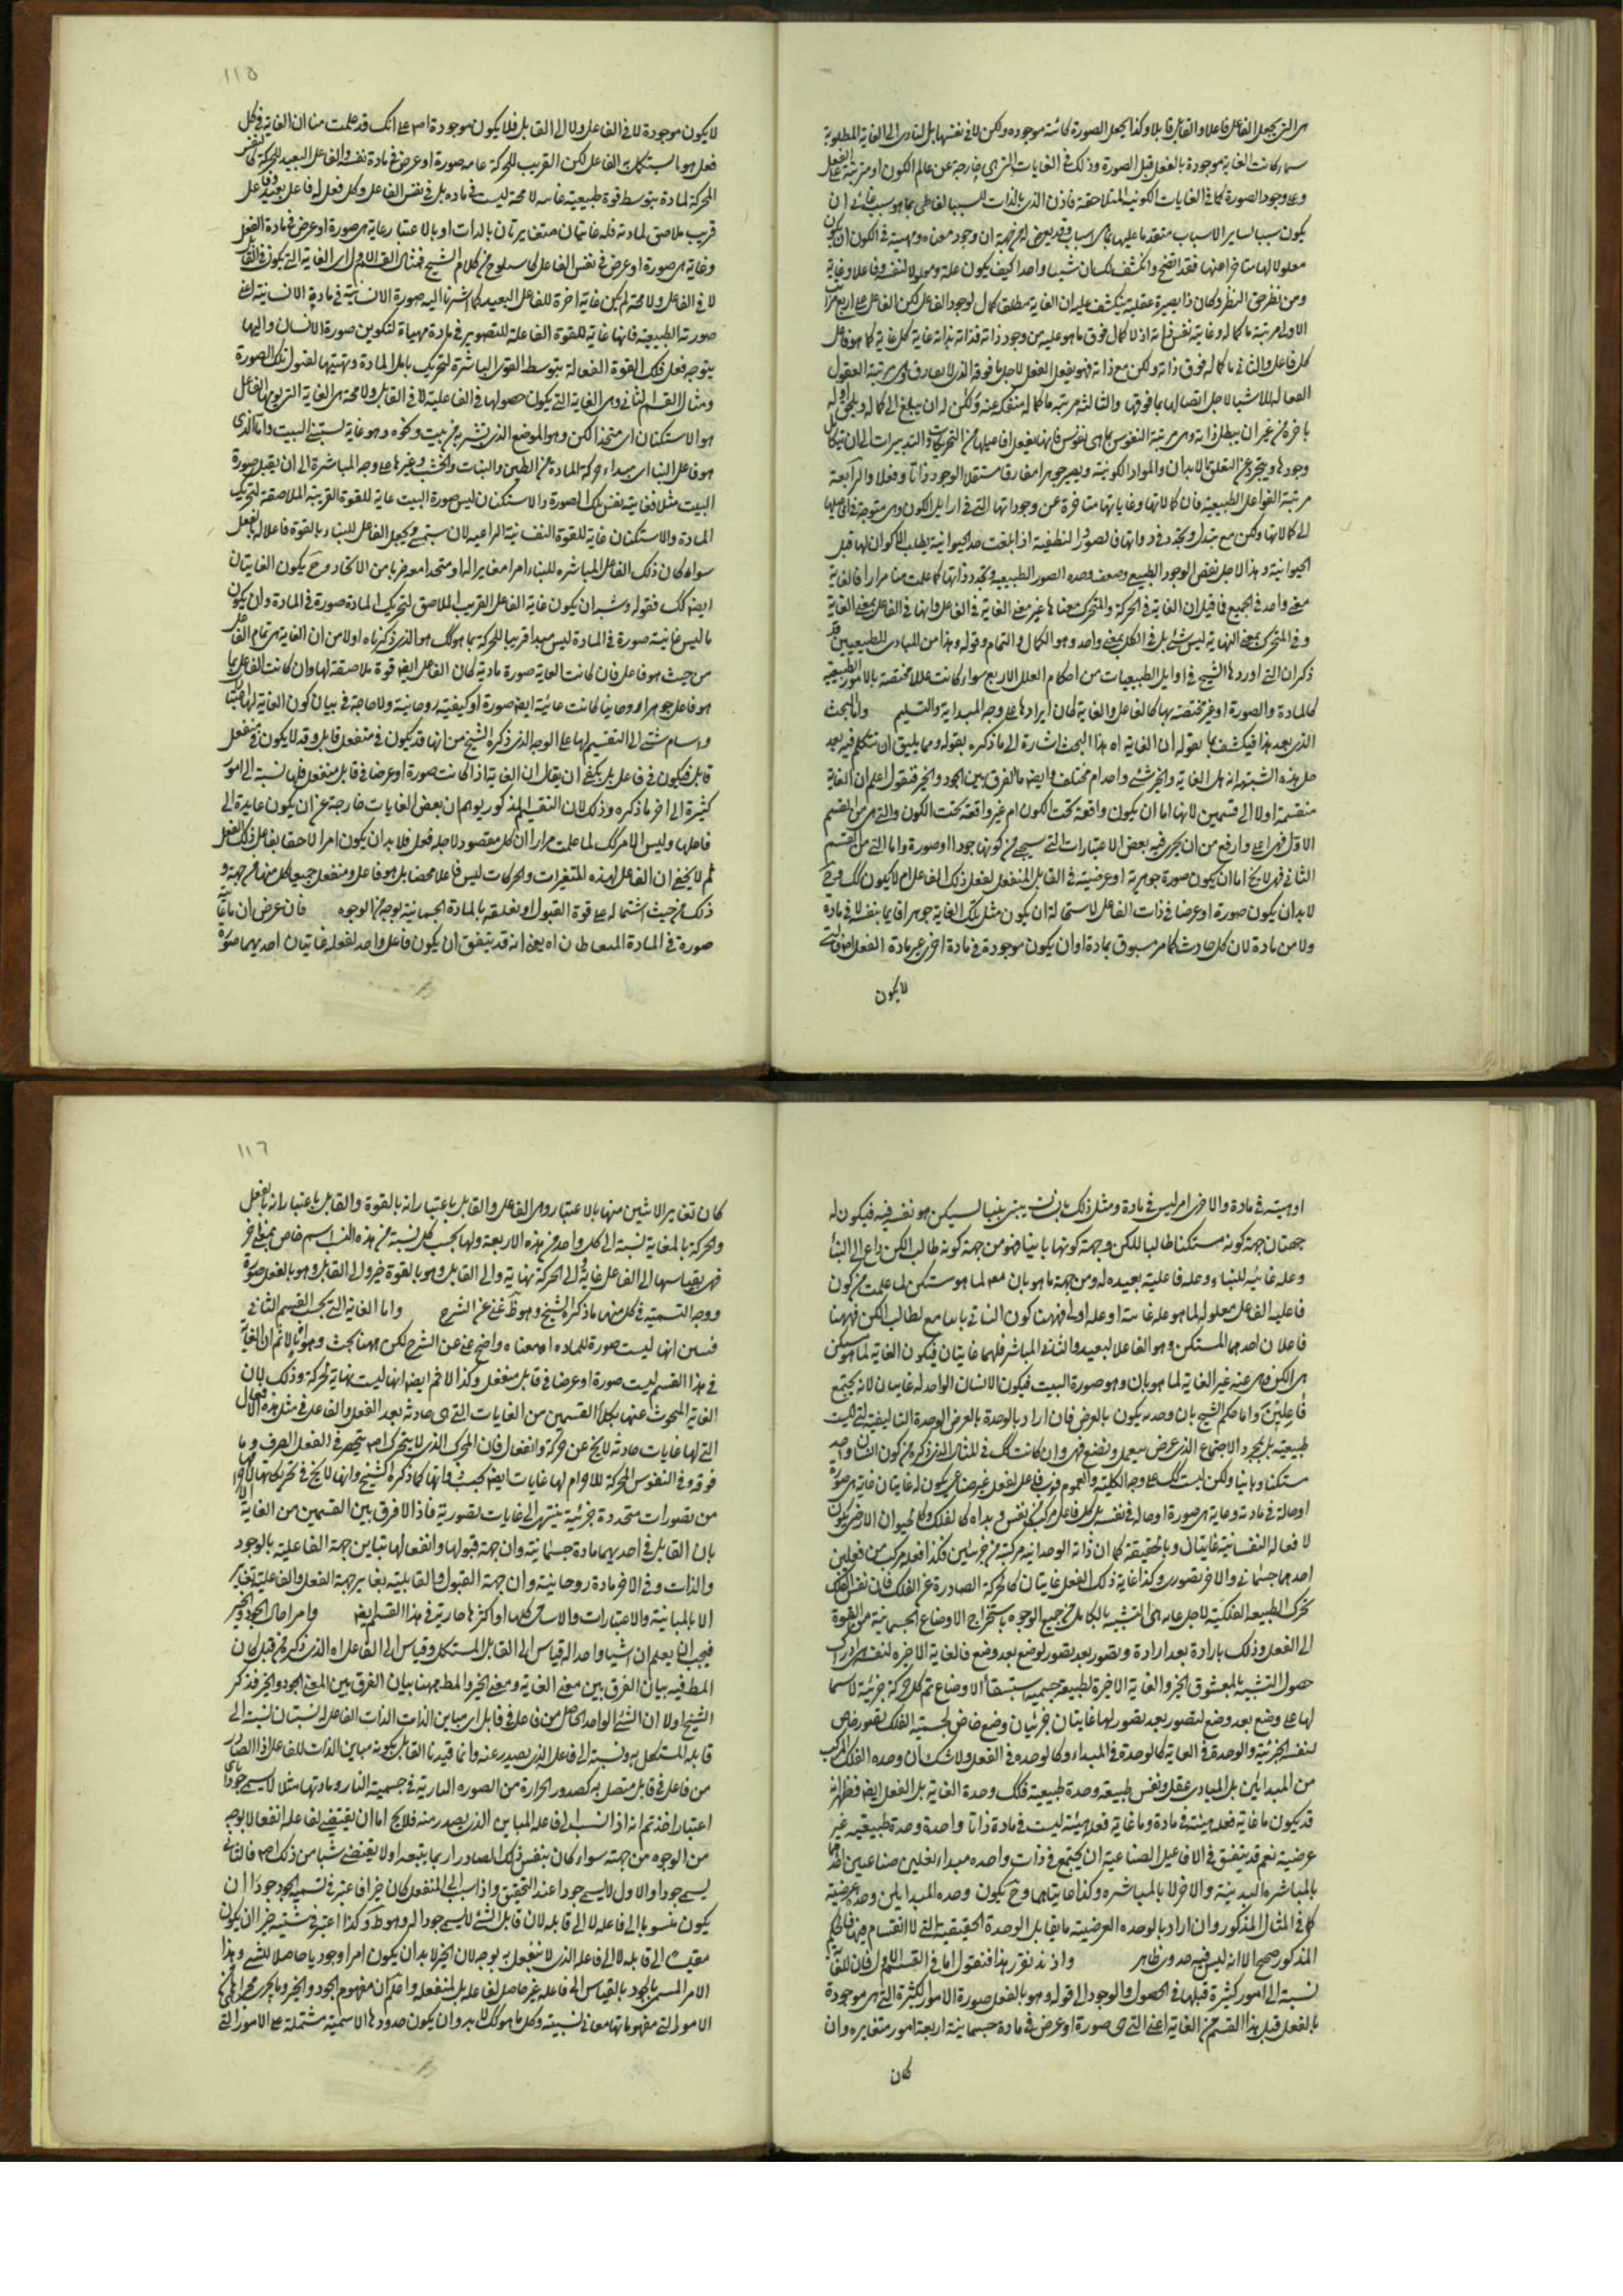 هى التى يجعل الفاعل فاعلا والقابل قابلا وكذا يجعل الصورة كائنة موجوده ولكن لا فى نفسها بل لتادى الى الغاية المطلوبة
سواء كانت الغاية موجودة بالفعل قبل الصورة وذلك فى الغايات التى هى خارجة عن عالم الكون او مترتبة على الفعل
وعلى وجود الصورة كما فى الغايات الكونية المتلاحقة فاذن الذى بالذات السبب الفاعلى بما هو سبب
يكون سببا لساير الاسباب متقدما عليها بما هى اسباب وقد يعرض له من جهة ان وجود معناه ومهيته فى الكون ان يكون
معلولا لها متاخرا عنها فقد اتضح وانكشف لك ان شيئا واحدا كيف يكون علة ومعلولا لنفسه وفاعلا وغاية
ومن نظر حق النظر وكان ذا بصيرة عقلية ينكشف عليه ان الغاية مطلقا كمال لوجود الفاعل لكن الفاعل على اربع مراتب
الاولى مرتبة ما كماله وغايته نفس ذاته اذ لا كمال فوق ما هو عليه من وجود ذاته فذاته بذاته غاية كل غاية كما هو فاعل
كل فاعل والثانى ما كماله فوق ذاته ولكن مع ذاته فهو يفعل الفعل لاجل ما فوقه الذى لا يفارق وهى مرتبة العقول
الفعاله للاشياء لاجل اتصالها بما فوقها والثالثة مرتبة ما كماله منفك عنه ولكن له ان يبلغ الى كماله ويلحق اوله
باخره من غير ان يبطل ذاته وهى مرتبة النفوس بما هى نفوس فانها يفعل افاعيلها من التحريكات والتدبيرات الى ان يتكامل
وجودها ويتجرد عن التعلق بالابدان والمواد الكونية ويصير جوهرا مفارقا مستقل الوجود ذاتا وفعلا والرابعة
مرتبة الفواعل الطبيعية فان كمالاتها وغاياتها متاخرة عن وجوداتها التى فى اوايل الكون وهى متوجهة فى افاعيلها
الى كمالاتها ولكن مع تبدل وتجدد فى ذواتها فالصورة النطفية اذا بلغت حد الحيوانية بطلت الاكوان لها قبل
الحيوانية وهذا لاجل نقص الوجود الطبيعى وضعف وحدة الصور الطبيعية وتجدد ذواتها كما علمت منا مرارا فالغاية
معنى واحد فى الجميع فما قيل ان الغاية فى الحركة والمتحرك معناها غير معنى الغاية فى الفاعل وانها فى الفاعل بمعنى الغاية
وفى المتحرك بمعنى النهاية ليس بشئ بل فى الكل بمعنى واحد وهو الكمال والتمام وقوله وهذا من المبادى للطبيعيين قد
ذكر ان التى اوردها الشيخ فى اوايل الطبيعيات من احكام العلل الاربع سواء كانت عللا مختصة بالامور الطبيعية
كالمادة والصورة او غير مختصة بها كالفاعل والغاية كان ايرادها على وجه المبدئية والتسليم واما البحث
الذى بعد هذا فيكشف بما بقوله ان الغاية اه هذا البحث اشارة الى ما ذكره بقوله ومما يليق ان نتكلم فيه بعد
حل هذه الشبهة انه هل الغاية والخير شئ واحد ام مختلف وايضا ما الفرق بين الجود والخير فنقول اعلم ان الغاية
منقسمة اولا الى قسمين لانها اما ان يكون واقعة تحت الكون ام غير واقعة تحت الكون والتى هى من القسم
الاول فهى اعلى وارفع من ان يجرى فيه بعض الاعتبارات التى سيجئ من كونها جودا او صورة واما التى من القسم
الثانى فهى لا يخ اما ان يكون صورة جوهرية او عرضية فى القابل المنفعل لفعل ذلك الفاعل ام لا يكون كك وح
لابد ان يكون صورة او عرضا فى ذات الفاعل لاستحالة ان يكون مثل تلك الغاية جوهرا قايما بنفسه لا فى مادة
ولا من مادة لان كل حادث كما مر مسبوق بمادة او ان يكون موجودة فى مادة اخرى غير مادة الفعل
لا يكون
١١٥
لا يكون موجودة لا فى الفاعل ولا الى القابل فلا يكون موجودة اصلا على انك قد علمت منا ان الغاية فى كل
فعل هو ما يستكمل به الفاعل لكن القريب للحركة غايته صورة او عرض فى مادة نفسه والفاعل البعيد للحركة كالنفس
المحركة لمادة بتوسط قوة طبيعية غايته لا محة ليست فى مادة بل فى نفس الفاعل وكل فعل له فاعل بعيد وفاعل
قريب ملاصق لمادته فله غايتان متغايرتان بالذات او بالاعتبار غاية هى صورة او عرض فى مادة الفعل
وغاية هى صورة او عرض فى نفس الفاعل كما سيلوح من كلام الشيخ فمثال القسم الاول اى الغاية التى يكون فى القابل
لا فى الفاعل ولا محة لم يكن غاية اخرة للفاعل البعيد كما اشرنا اليه صورة الانسانية فى مادة الانسانية اعنى
صورته الطبيعية فانها غاية للقوة الفاعلة للتصوير فى مادة مهياة لتكوين صورة الانسان واليها
يتوجه فعل تلك القوة الفعالة بتوسط القوى المباشرة لتحريك المادة وتهيئتها لقبول تلك الصورة
ومثال القسم الثانى وهى الغاية التى يكون حصولها فى الفاعلية لا فى القابل ولا محة هى الغاية التى يومها الفاعل
هو الاستكنان اى متخذ الكن وهو الموضع الذى يستر به من بيت ونحوه وهو غاية لمستبنى البيت واما الذى
هو فاعل البناء اى مبداء حركة المادة من الطين والنبات والخشب وغيرها على وجه المباشرة الى ان يقبل صورة
البيت مثلا فغايته نفس تلك الصورة والاستكنان ليس صورة البيت غاية للقوة القريبة الملاصقة لتحريك
المادة والاستكنان غاية للقوة النفسانية الداعية لان يستبنى ويجعل الفاعل للبناء بالقوة فاعلا له بالفعل
سواء كان ذلك الفاعل المباشر للبناء امرا مغايرا له او متحدا معه ضربا من الاتحاد وح يكون الغايتان
ايضا كك فقوله وشبه ان يكون غاية الفاعل القريب الملاصق لتحريك المادة صورة فى المادة وان يكون
ما ليس غايته صورة فى المادة ليس مبداء قريبا للحركة بما هو كك هو الذى ذكرناه اولا من ان الغاية هى تمام الفاعل
من حيث هو فاعل فان كانت الغاية صورة مادية كان الفاعل ايضا قوة ملاصقة لها وان كانت الفاعل بما
هو فاعل جوهرا روحانيا كانت غايته ايضا صورة او كيفية روحانية ولا حاجة فى بيان كون الغاية لها
واسام شتى الى التقسيم لها على الوجه الذى ذكره الشيخ من انها قد يكون فى منفعل قابل وقد لا يكون فى منفعل
قابل فيكون فى فاعل بل يكفى ان يقال ان الغاية اذا كانت صورة او عرضا فى قابل منفعل فلها نسبة الى امور
كثيرة الى اخر ما ذكره وذلك لان التقسيم المذكور يوهم ان بعض الغايات خارجة عن ان يكون عايدة الى
فاعلها وليس الامر كك لما علمت مرارا ان كل مقصود لاجل فعل فلابد ان يكون امرا لاحقا بفاعل ذلك الفعل
ثم لا يخفى ان الفاعل لهذه المتغيرات والحركات ليس فاعلا محضا بل هو فاعل ومنفعل جميعا لكل منهما من جهة و
ذلك من حيث اشتماله على قوة القبول او تعلقه بالمادة الجسمانية بوجه من الوجوه فان عرض ان ما غايته
صورة فى المادة المتعاطيان اه يعنى انه قد يتفق ان يكون فاعل واحد لفعله غايتان احديهما صورة
او هيئة فى مادة والاخرى امر ليس فى مادة ومثل ذلك بانسان يبنى بيتا ليسكن هو نفسه فيه فيكون له
جهتان جهة كونه مستكنا طالبا للكن وجهة كونها بانيا فهو من جهة كونه طالب الكن داع الى البناء
وعلة غائية للبناء وعلة فاعلية بعيدة له ومن جهة ما هو بان معلول لما هو مستكن لما علمت من كون
فاعلية الفاعل معلوله لما هو علة غائية او علة اولى فههنا كون البانى بانيا مع لطالب الكن فههنا
فاعلان احدهما المستكن وهو الفاعل البعيد والثانى المباشر فلهما غايتان فيكون الغاية لما هو مستكن
هى الكن فهى عنه غير الغاية لما هو بان وهو صورة البيت فيكون الانسان الواحد له غايتان لانه يجتمع
فاعلين واما حكم الشيخ بان وحدته يكون بالعرض فان اراد بالوحدة بالعرض الوحدة التاليفية التى ليست
طبيعية بل بمجرد الاجتماع الذى عرض بتعمل وتصنع فهى وان كانت كك فى المثال الذى ذكره من كون انسان واحد
مستكنا وبانيا ولكن ليست كك على وجه الكلية والعموم فرب فاعل لفعل غير صناعى يكون له غايتان غاية هى صورة
او حالة فى مادته وغاية هى صورة او حالة فى نفسه بل كل فاعل مركب من نفس وبدن كالفلك وكالحيوان الارضى يكون
لافعاله النفسانية غايتان وبالحقيقة كما ان ذاته الوحدانية مركبة من جزئين فكذا فعله مركب من فعلين
احدهما جسمانى والاخر تصورى وكذا غاية ذلك الفعل غايتان كالحركة الصادرة عن الفلك فان نفس الفلك
تحرك الطبيعة الفلكية لاجل غاية هى التشبه بالكامل من جميع الوجوه باستخراج الاوضاع الجسمانية من القوة
الى الفعل وذلك بارادة بعد ارادة وتصور بعد تصور لوضع بعد وضع فالغاية الاخيرة لنفسه هى ادراك
حصول التشبه بالمعشوق الخير والغاية الاخيرة لطبيعة جسمية استبقاء الاوضاع ثم كل حركة جزئية لاسما
لها على وضع بعد وضع لتصور بعد تصور لها غايتان جزئيان وضع خاص لجسمية الفلك وتصور خاص
لنفسه الجزئية والوحدة فى الغاية كالوحدة فى المبداء وكالوحدة فى الفعل ولا شك ان وحدة الفلك المركب
من المبدائين بل المبادى عقل ونفس طبيعة وحدة طبيعية فكك وحدة الغاية بل الفعل ايضا فظهر انه
قد يكون ما غاية فعله هيئة فى مادة وما غاية فعله هيئة ليست فى مادة ذاتا واحدة وحدة طبيعية غير
عرضية نعم قد يتفق فى الافاعيل الصناعية ان يجتمع فى ذات واحدة مبداء لفعلين صناعيين احدهما
بالمباشرة البدنية والاخر لا بالمباشرة وكذا غايتاهما وح يكون وحدة المبداين وحدة عرضية
كما فى المثال المذكور وان اراد بالوحدة العرضية ما يقابل الوحدة الحقيقية التى لا انقسام فيها فالحكم
المذكور صحيح الا انه ليس فيه جدوى ظاهر واذ قد تقرر هذا فنقول اما فى القسم الاول فان للغاية
نسبة الى امور كثيرة قبلها فى الحصول والوجود الى قوله وهو بالفعل صورة الامور الكثيرة التى هى موجودة
بالفعل قبل هذا القسم من الغاية اعنى التى هى صورة او عرض فى مادة جسمانية اربعة امور متغايرة وان
كان
١١٦
كان تغاير الاثنين منها بالاعتبار وهى الفاعل والقابل باعتبار انه بالقوة والقابل باعتبار انه بالفعل
والحركة بالمغاية نسبة الى كل واحد من هذه الاربعة ولها بحسب كل نسبة من هذه النسب اسم خاص بمعنى اخر
فهى بقياسها الى الفاعل غاية والى الحركة نهاية والى القابل وهو بالقوة خير والى القابل وهو بالفعل صورة
ووجه التسمية فى كل منها ما ذكره الشيخ وهو ظ غنى عن الشرح واما الغاية التى بحسب القسم الثانى
فبين انها ليست صورة للمادة اه معناه واضح غنى عن الشرح لكن ههنا بحث وهو انا لا نم ان الغاية
فى هذا القسم ليست صورة او عرضا فى قابل منفعل وكذا لا نم ايضا انها ليست نهاية لحركة وذلك لان
الغاية المبحوث عنها بكلا القسمين من الغايات التى هى حادثة بعد الفعل والفاعل فى مثل هذه الافعال
التى لها غايات حادثة لا يخ عن حركة وانفعال فان المحرك الذى لا يتحرك اصلا ينحصر فى الفعل الصرف وما
فوقه وفى النفوس المحركة للاجرام لها غايات ايضا كحسب ذواتها كما ذكره الشيخ وانها لا يخ فى تحريكاتها الاجرام
من تصورات متجددة جزئية ينتهى الى غايات تصورية فاذا لا فرق بين القسمين من الغاية الا
بان القابل فى احديهما مادة جسمانية وان جهة قبولها وانفعالها تباين جهة الفاعلية بالوجود
والذات وفى الاخر مادة روحانية وان جهة القبول والقابلية يغاير جهة الفعل والفاعلية تغاير
الا بالمباينة والاعتبارات والاسامى كلها او اكثرها جارية فى هذا القسم ايضا واما حال الجود والخير
فيجب ان يعلم ان شيئا واحدا له قياس الى القابل المستكمل وقياس الى الفاعل اه الذى ذكره من قبل كان
المط فيه بيان الفرق بين معنى الغاية ومعنى الخير والمط ههنا بيان الفرق بين المعنى الجود والخير فذكر
الشيخ اولا ان الشئ الواحد الحاصل من فاعل فى قابل اى مباين الذات الذات الفاعل له نسبتان نسبة الى
قابله المستكمل به ونسبة الى فاعله الذى يصدر عنه وانما قيدنا القابل بكونه مباين الذات للفاعل اذ الصادر
من فاعل فى قابل متصل به كصدور الحرارة من الصورة النارية فى جسمية النار ومادتها مثلا لا يسمى جودا باى
اعتبار اخذ ثم انه اذا نسب الى فاعله المباين الذى يصدر منه فلا يخ اما ان يقتضى لفاعله انفعالا بوجه
من الوجوه من جهته سواء كان بنفس ذلك الصادر او بما يتبعه او لا يقتضى شيئا من ذلك اصلا فالثانى
يسمى جودا والاول لا يسمى جودا عند التحقيق واذا نسب الى المنفعل كان خيرا فاعتبر فى تسمية الجود جودا ان
يكون منسوبا الى فاعله لا الى قابله لان قابل الشئ لا يسمى جودا له وهو ظ وكذا اعتبر فى تسمية خيرا ان يكون
مقيسا الى قابله لا الى فاعله الذى لا ينفعل به بوجه لان الخير لابد ان يكون امرا وجوديا حاصلا للشئ وهذا
الامر المسمى بالجود بالقياس الى فاعله غير حاصل لفاعله بل لمنفعله واعلم ان مفهوم الجود والخير وما يجرى مجراهما من
الامور التى مفهوماتها معانى نسبية وكل ما هو كك لابد وان يكون حدودها الاسمية مشتملة على الامور التى